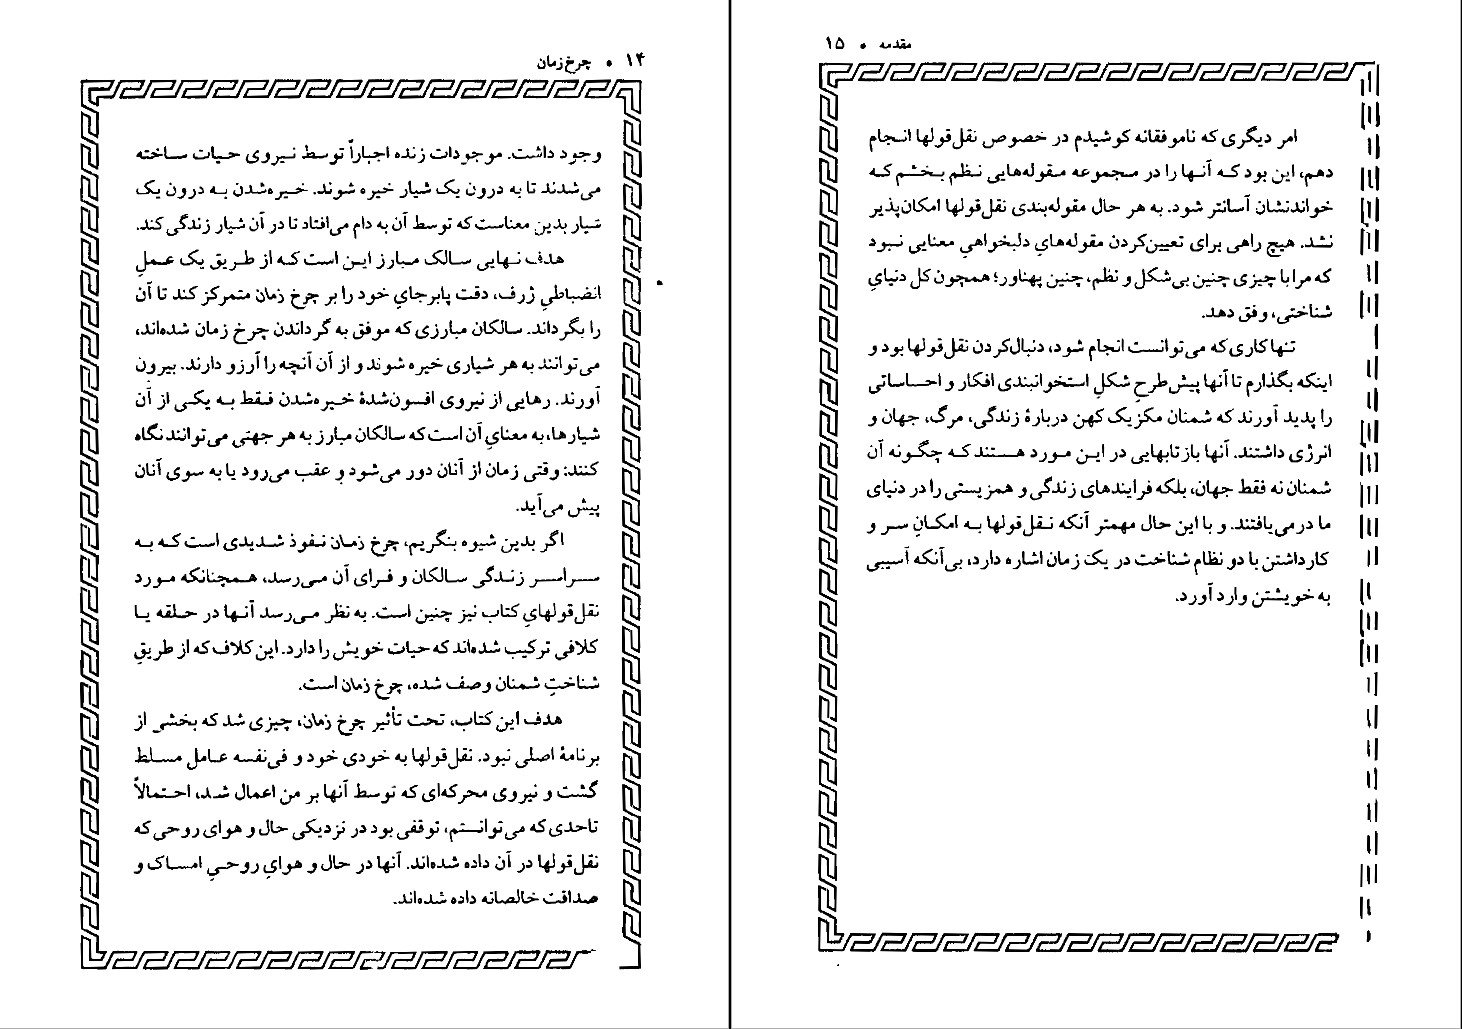 ۱۴ • چرخ زمان
وجود داشت. موجودات زنده اجباراً توسط نیروی حیات ساخته
می‌شدند تا به درون یک شیار خیره شوند. خیره‌شدن به درون یک
شیار بدین معناست که توسط آن به دام می‌افتاد تا در آن شیار زندگی کند.
هدف نهایی سالک مبارز این است که از طریق یک عملِ
انضباطیِ ژرف، دقت پابرجایِ خود را بر چرخ زمان متمرکز کند تا آن
را بگرداند. سالکان مبارزی که موفق به گرداندن چرخ زمان شده‌اند،
می‌توانند به هر شیاری خیره شوند و از آن آنچه را آرزو دارند. بیرون
آورند. رهایی از نیروی افسون‌شدهٔ خیره‌شدن فقط به یکی از آن
شیارها، به معنایِ آن است که سالکان مبارز به هر جهتی می‌توانند نگاه
کنند: وقتی زمان از آنان دور می‌شود و عقب می‌رود یا به سوی آنان
پیش می‌آید.
اگر بدین شیوه بنگریم، چرخ زمان نفوذ شدیدی است که به
سراسر زندگی سالکان و فرای آن می‌رسد، همچنانکه مورد
نقل‌قولهایِ کتاب نیز چنین است. به نظر می‌رسد آنها در حلقه یا
کلافی ترکیب شده‌اند که حیات خویش را دارد. این کلاف که از طریقِ
شناختِ شمنان وصف شده، چرخ زمان است.
هدف این کتاب، تحت تأثیر چرخ زمان، چیزی شد که بخشی از
برنامهٔ اصلی نبود. نقل‌قولها به خودی خود و فی‌نفسه عامل مسلط
گشت و نیروی محرکه‌ای که توسط آنها بر من اعمال شد، احتمالاً
تاحدی که می‌توانستم، توقفی بود در نزدیکی حال و هوای روحی که
نقل‌قولها در آن داده شده‌اند. آنها در حال و هوایِ روحیِ امساک و
صداقت خالصانه داده شده‌اند.
مقدمه • ۱۵
امر دیگری که ناموفقانه کوشیدم در خصوص نقل‌قولها انجام
دهم، این بود که آنها را در مجموعه مقوله‌هایی نظم بخشم که
خواندنشان آسانتر شود. به هر حال مقوله‌بندی نقل‌قولها امکان‌پذیر
نشد. هیچ راهی برای تعیین‌کردن مقوله‌هایِ دلبخواهیِ معنایی نبود
که مرا با چیزی چنین بی‌شکل و نظم، چنین پهناور؛ همچون کل دنیایِ
شناختی، وفق دهد.
تنها کاری که می‌توانست انجام شود، دنبال‌کردن نقل‌قولها بود و
اینکه بگذارم تا آنها پیش‌طرحِ شکلِ استخوانبندی افکار و احساساتی
را پدید آورند که شمنان مکزیک کهن دربارهٔ زندگی، مرگ، جهان و
انرژی داشتند. آنها بازتابهایی در این مورد هستند که چگونه آن
شمنان نه فقط جهان، بلکه فرایندهای زندگی و همزیستی را در دنیای
ما درمی‌یافتند. و با این حال مهمتر آنکه نقل‌قولها به امکانِ سر و
کارداشتن با دو نظام شناخت در یک زمان اشاره دارد، بی‌آنکه آسیبی
به خویشتن وارد آورد.